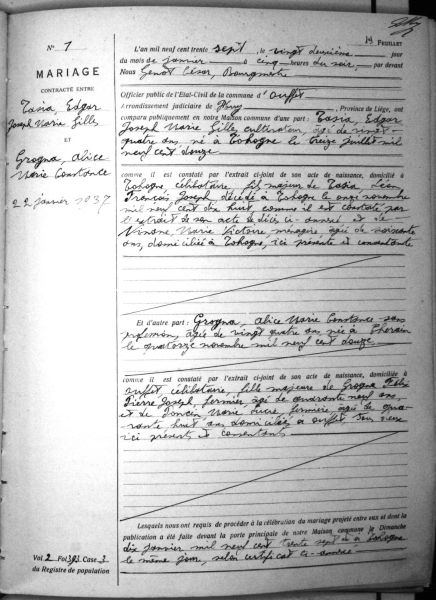 14 FEUILLET
N° 7
MARIAGE
CONTRACTÉ ENTRE
Tasia, Edgar
Joseph Marie Gilles
ET
Grogna, Alice
Marie Constance
22 janvier 1937
L'an mil neuf cent trente sept, le vingt deuxième jour
du mois de janvier à cinq heures du soir, par devant
Nous Genot César, Bourgmestre
Officier public de l'Etat-Civil de la commune d' Ouffet
Arrondissement judiciaire de Huy, Province de Liége, ont
comparu publiquement en notre Maison commune d'une part: Tasia, Edgar
Joseph Marie Gilles, cultivateur, âgé de vingt-
quatre ans, né à Tohogne le treize juillet mil
neuf cent douze
comme il est constaté par l'extrait ci-joint de son acte de naissance, domicilié à
Tohogne, célibataire, fils majeur de Tasia Léon
François Joseph décédé à Tohogne le onze novembre
mil neuf cent dix huit, comme il est constaté par
l'extrait de son acte de décès ci-annexé et de
Ninane Marie Victoire ménagère âgée de soixante
ans, domiciliée à Tohogne, ici présente et consentante
Et d'autre part: Grogna, Alice Marie Constance sans
profession, âgée de vingt quatre ans née à
le quatorze novembre mil neuf cent douze
comme il est constaté par l'extrait ci-joint de son acte de naissance, domiciliée à
Ouffet célibataire, fille majeure de Grogna Félix
Pierre Joseph, fermier âgé de quarante neuf ans,
et de Poncin Marie fermière âgée de qua-
rante huit ans domiciliés à Ouffet tous deux
ici présents et consentants
Lesquels nous ont requis de procéder à la célébration du mariage projeté entre eux et dont la
publication a été faite devant la porte principale de notre Maison commune le Dimanche
dix janvier mil neuf cent trente sept et à Tohogne
le même jour, selon certificat ci-annexé
Vol 2 Fol 393 Case 3
du Registre de population